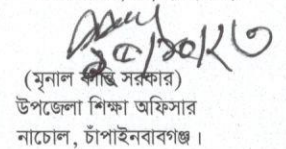 ২৫/১০/২৩
(মৃনাল কান্তি সরকার)
উপজেলা শিক্ষা অফিসার
নাচোল, চাঁপাইনবাবগঞ্জ।